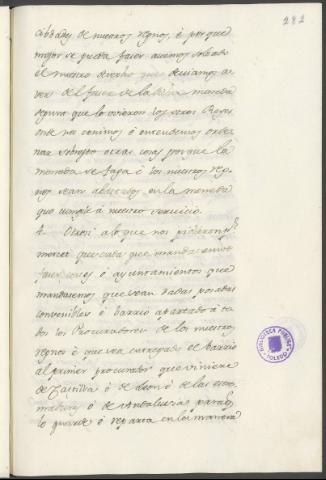 282
cibdades de nuestros regnos, é porque
mejor se pueda facer avemos
el nuestro derecho que deviamos a
ver del facer de la dicha moneda
segunt que lo ovieron los otros Reyes
onde nos venimos é entendemos orde
nar sobresto otras cosas porque la
moneda se faga é los nuestros reg
nos sean abastados en la manera
que cumple á nuestro servicio.
4. Otrosi a lo que nos pidieron por
merced que cada que mandasemos
facer cortes ó ayuntamientos que
mandasemos que sean dadas posadas
convenibles é barrio apartado á to
dos los Procuradores de los nuestros
regnos é que sea entregado el barrio
al primer procurador que viniere
de Castilla ó de Leon ó de las estre
maduras ó de Andalucia para q.
lo guarde é reparta en la manera
BIBLIOTECA PUBLICA
TOLEDO